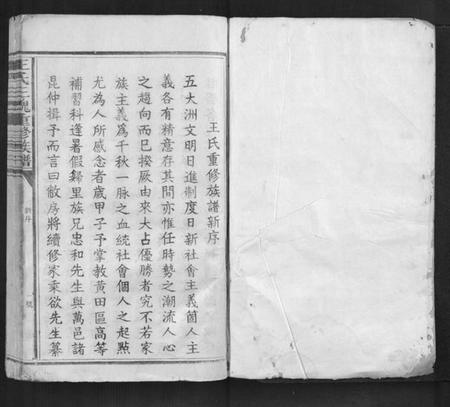 王氏重修族譜新序
五大洲文明日進制度日新社會主義箇人主
義各有精意存其間亦惟任時勢之潮流人心
之趨向而已揆厥由來大占優勝者究不若家
族主義為千秋一脉之血統社會個人之起點
尤為人所感念者歲甲子予掌教黄田區高等
補習科逢暑假歸里族兄忠和先生與萬邑諸
昆仲揖予而言曰敝房將續修家乘欲先生纂
王氏三槐重修族譜
新序